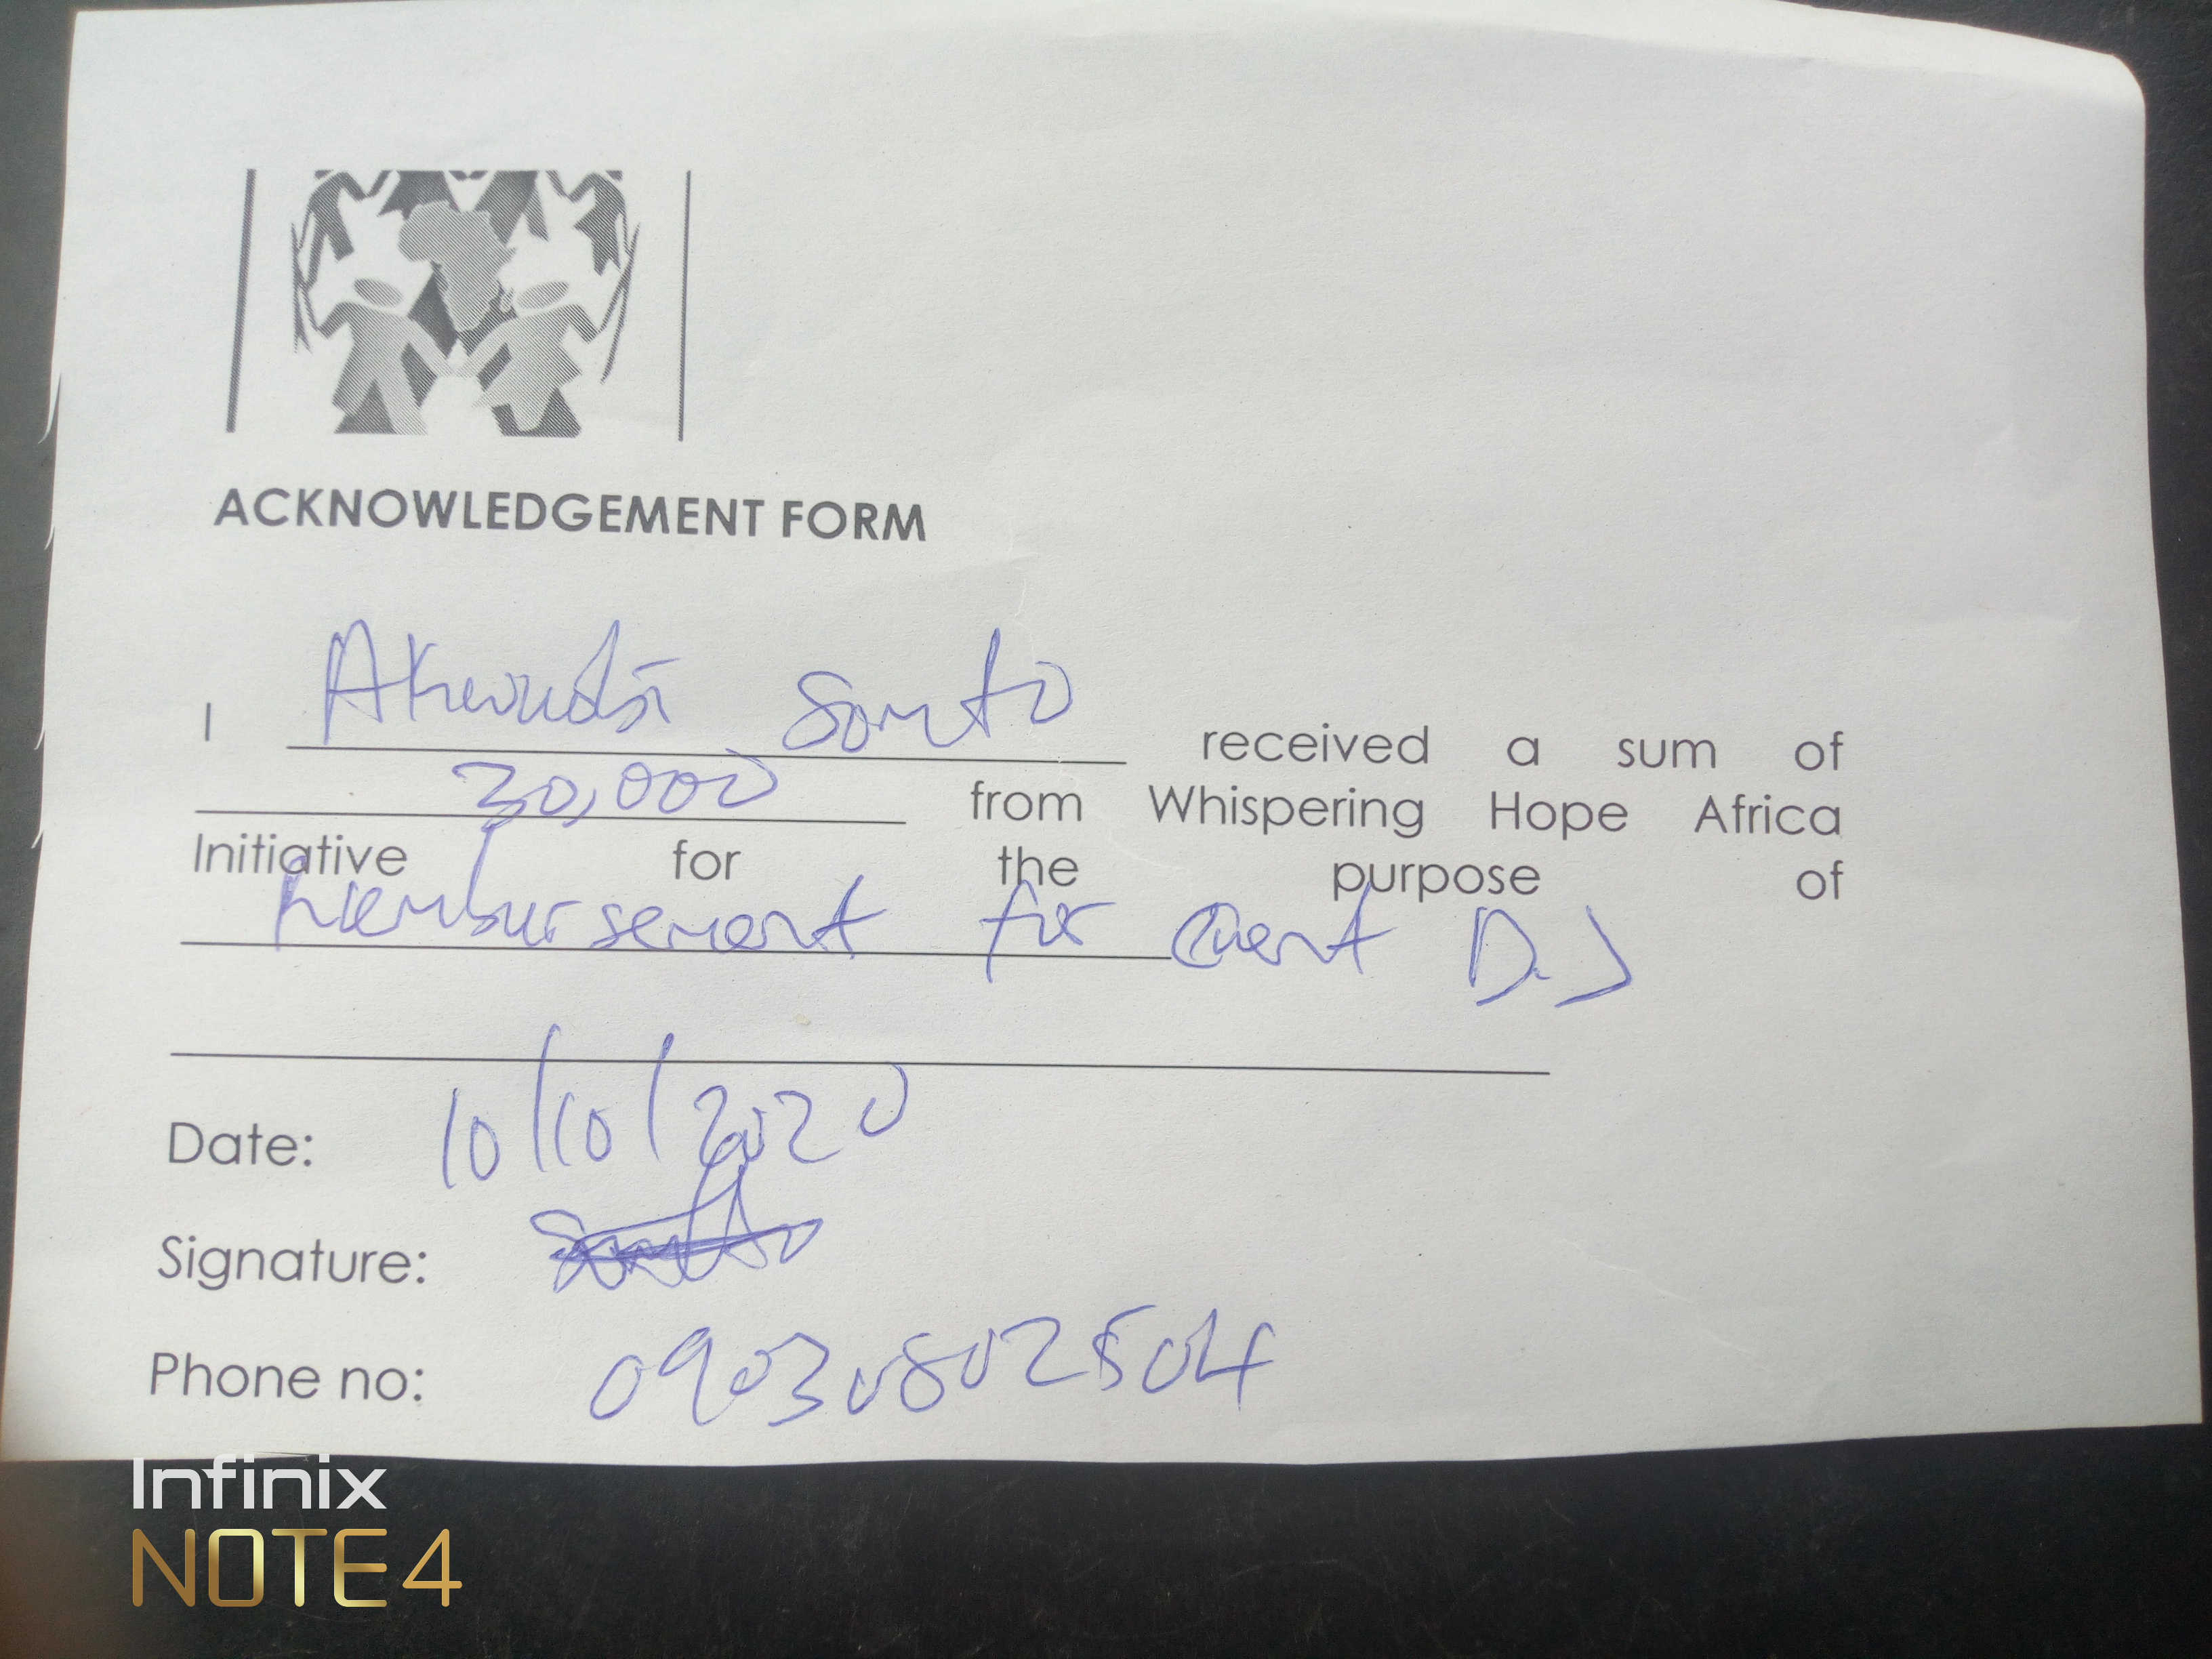 ACKNOWLEDGEMENT FORM
I Somto received a sum of
from Whispering Hope Africa
Initiative for the purpose of
for D.J
Date: 10/10/2020
Signature: Somto
Phone no: 09030802504
Infinix
NOTE4